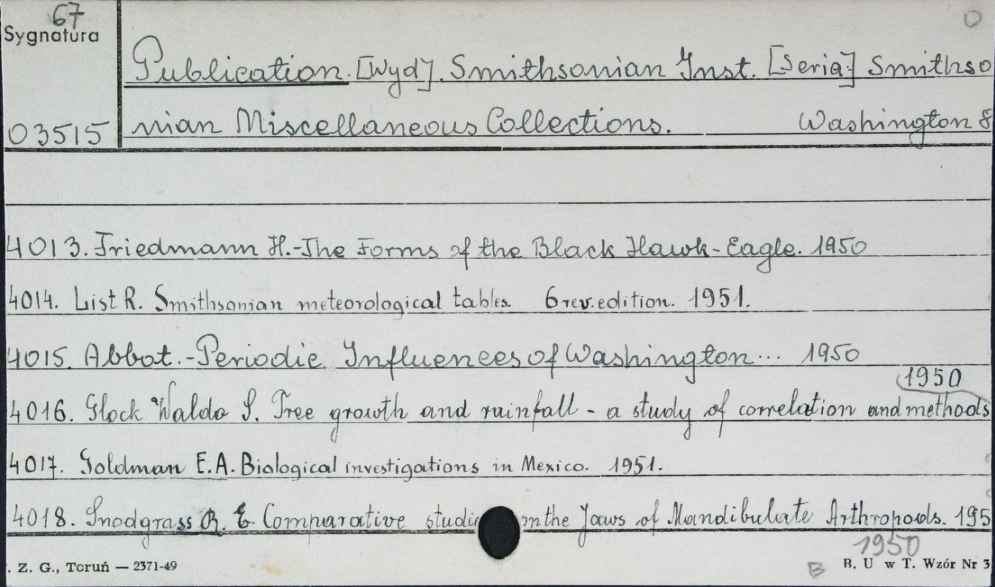 67
Sygnatura
03515
O
Publication. [Wyd]. Smithsonian Inst. [Seria:] Smithso
nian Miscellaneous Collections. Washington 8
4013. Friedmann H.-The Forms of the Black Hawk-Eagle. 1950
4014. List R. Smithsonian meteorological tables. 6 rev. edition. 1951.
4015. Abbot.-Periodie Influencees of Washington... 1950
1950
4016. Glock Waldo S. Tree growth and rainfall - a study of correlation and methods
4017. Goldman E.A. Biological investigations in Mexico. 1951.
4018. Snodgrass R. E. Comparative studi on the Jaws of Mandibulate Arthropods. 195
1950
. Z. G., Toruń — 2371-49
B
B. U w T. Wzór Nr 3